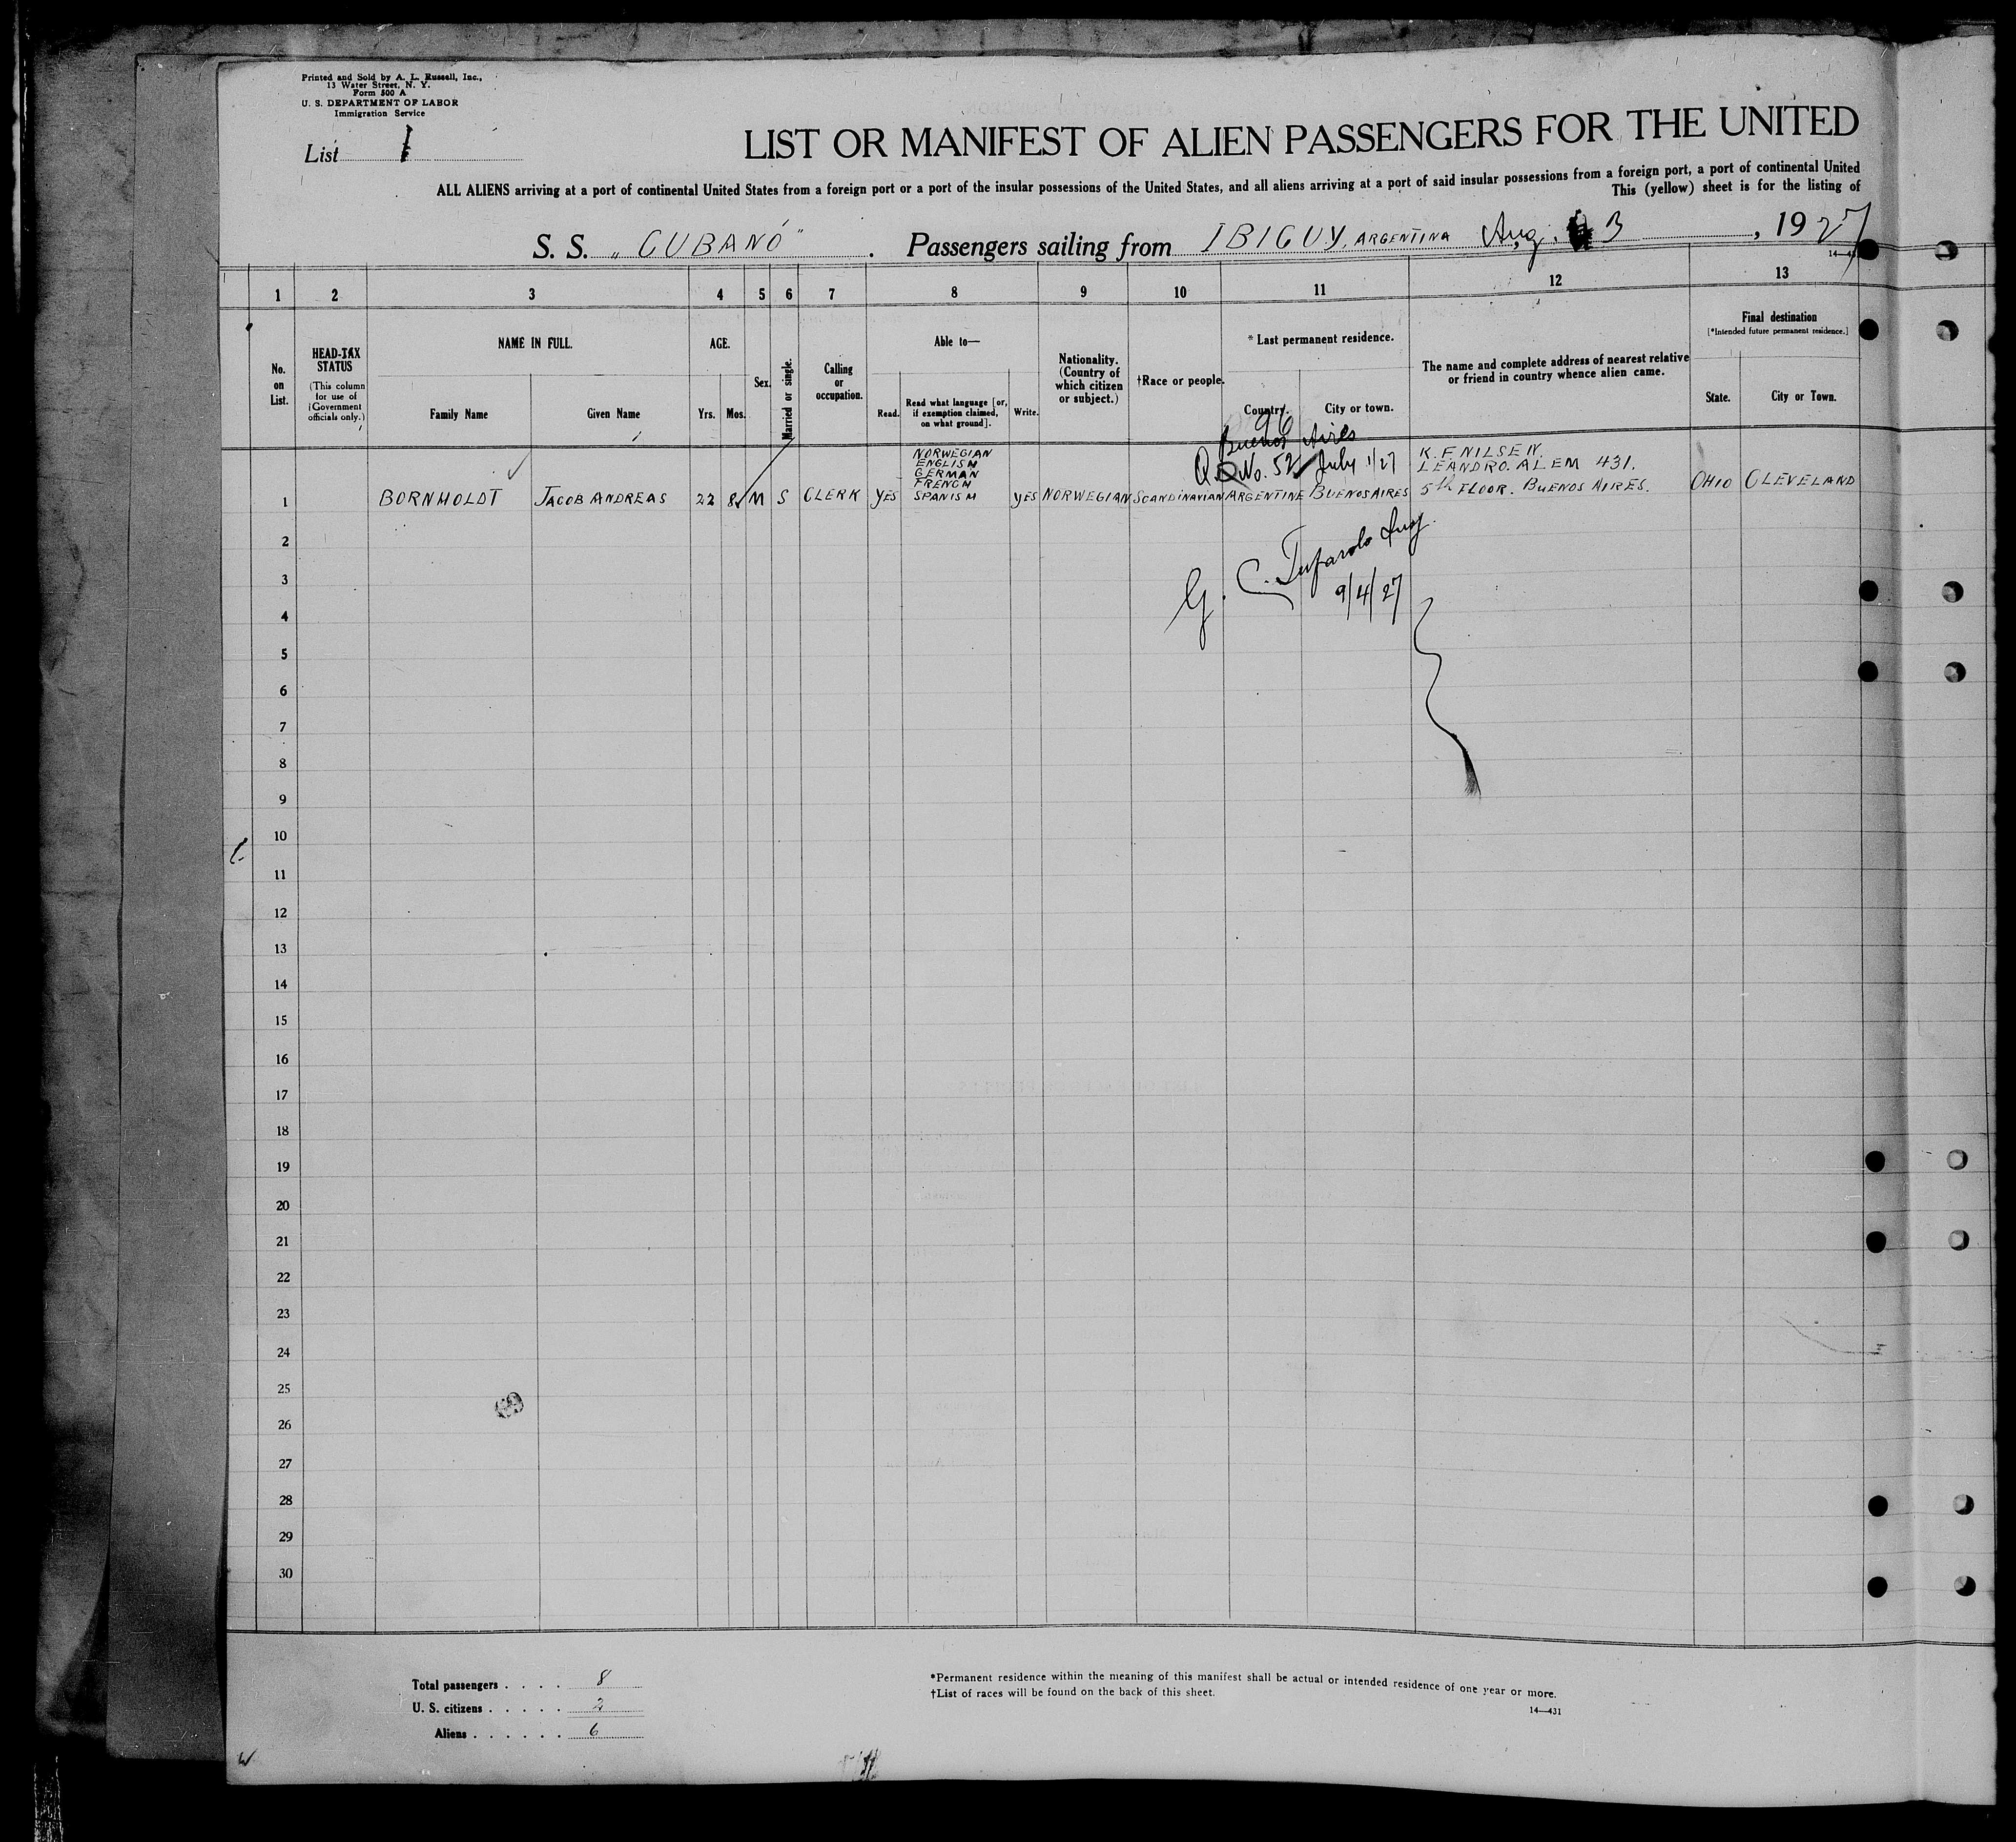 Printed and Sold by A. L. Russell, Inc.,
13 Water Street, N. Y.
Form 500 A
U. S. DEPARTMENT OF LABOR
Immigration Service
List 1
LIST OR MANIFEST OF ALIEN PASSENGERS FOR THE UNITED
ALL ALIENS arriving at a port of continental United States from a foreign port or a port of the insular possessions of the United States, and all aliens arriving at a port of said insular possessions from a foreign port, a port of continental United
This (yellow) sheet is for the listing of
S. S. "CUBANO". Passengers sailing from IBICUY, ARGENTINA Aug. 3, 1927
1 2 3 4 5 6 7 8 9 10 11 12 13
No. on List.
HEAD-TAX STATUS
(This column for use of Government officials only.)
NAME IN FULL.
Family Name Given Name
AGE.
Yrs. Mos.
Sex.
Married or single.
Calling or occupation.
Able to—
Read. Read what language [or, if exemption claimed, on what ground]. Write.
Nationality. (Country of which citizen or subject.)
†Race or people.
* Last permanent residence.
Country. City or town.
The name and complete address of nearest relative or friend in country whence alien came.
Final destination
[*Intended future permanent residence.]
State. City or Town.
96
Buenos Aires
No. 52 July 1/27
NORWEGIAN
ENGLISH
GERMAN
FRENCH
SPANISH
K. F. NILSEN.
LEANDRO. ALEM 431.
5th FLOOR. BUENOS AIRES.
1 BORNHOLDT JACOB ANDREAS 22 8 M S CLERK YES YES NORWEGIAN SCANDINAVIAN ARGENTINE BUENOS AIRES OHIO CLEVELAND
2
3
G. C.
9/4/27
4
5
6
7
8
9
10
11
12
13
14
15
16
17
18
19
20
21
22
23
24
25
26
27
28
29
30
Total passengers . . . . 8
U. S. citizens . . . . . 2
Aliens . . . . . . 6
*Permanent residence within the meaning of this manifest shall be actual or intended residence of one year or more.
†List of races will be found on the back of this sheet.
14—431